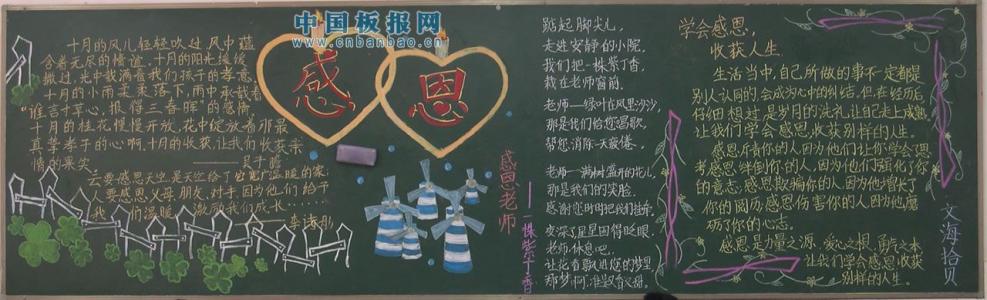 中国板报网
www.cnbanbao.cn
十月的风儿轻轻吹过,风中蕴
含着无尽的情谊,十月的阳光缓缓
撒过,光中载满着我们孩子的孝意,
十月的小雨柔柔落下,雨中承载着
"谁言寸草心,报得三春晖"的感情,
十月的桂花慢慢开放,花中绽放着那最
真挚孝子的心啊,十月的收获,让我们收获亲
情的果实。
要感恩父母,朋友,对手,因为他们给予
我们温暖,激励我们成长……
感
恩
感恩老师
——一株紫丁香
踮起脚尖儿,
走进安静的小院,
我们把一株紫丁香,
栽在老师窗前。
老师——绿叶在风里沙沙,
那是我们给您唱歌,
帮您消除一天疲倦。
老师——满树盛开的花儿,
那是我们的笑脸,
感谢您时时把我们挂牵。
夜深了,星星困得眨眼,
老师,休息吧,
让花香飘进您的梦里,
那梦啊,准又香又甜。
学会感恩,
收获人生。
生活当中,自己所做的事不一定都是
别人认同的,会成为心中的纠结,但,在经历后,
仔细想过,是岁月的洗礼,让自己走上成熟,
让我们学会感恩,收获别样的人生。
感恩斥责你的人,因为他们让你学会思
考,感恩绊倒你的人,因为他们强化了你
的意志;感恩欺骗你的人,因为他增长了
你的阅历,感恩伤害你的人,因为他磨
动了你的心志。
感恩是力量之源,爱心之根,勇气之本,
让我们学会感恩,收获
别样的人生。
文海拾贝